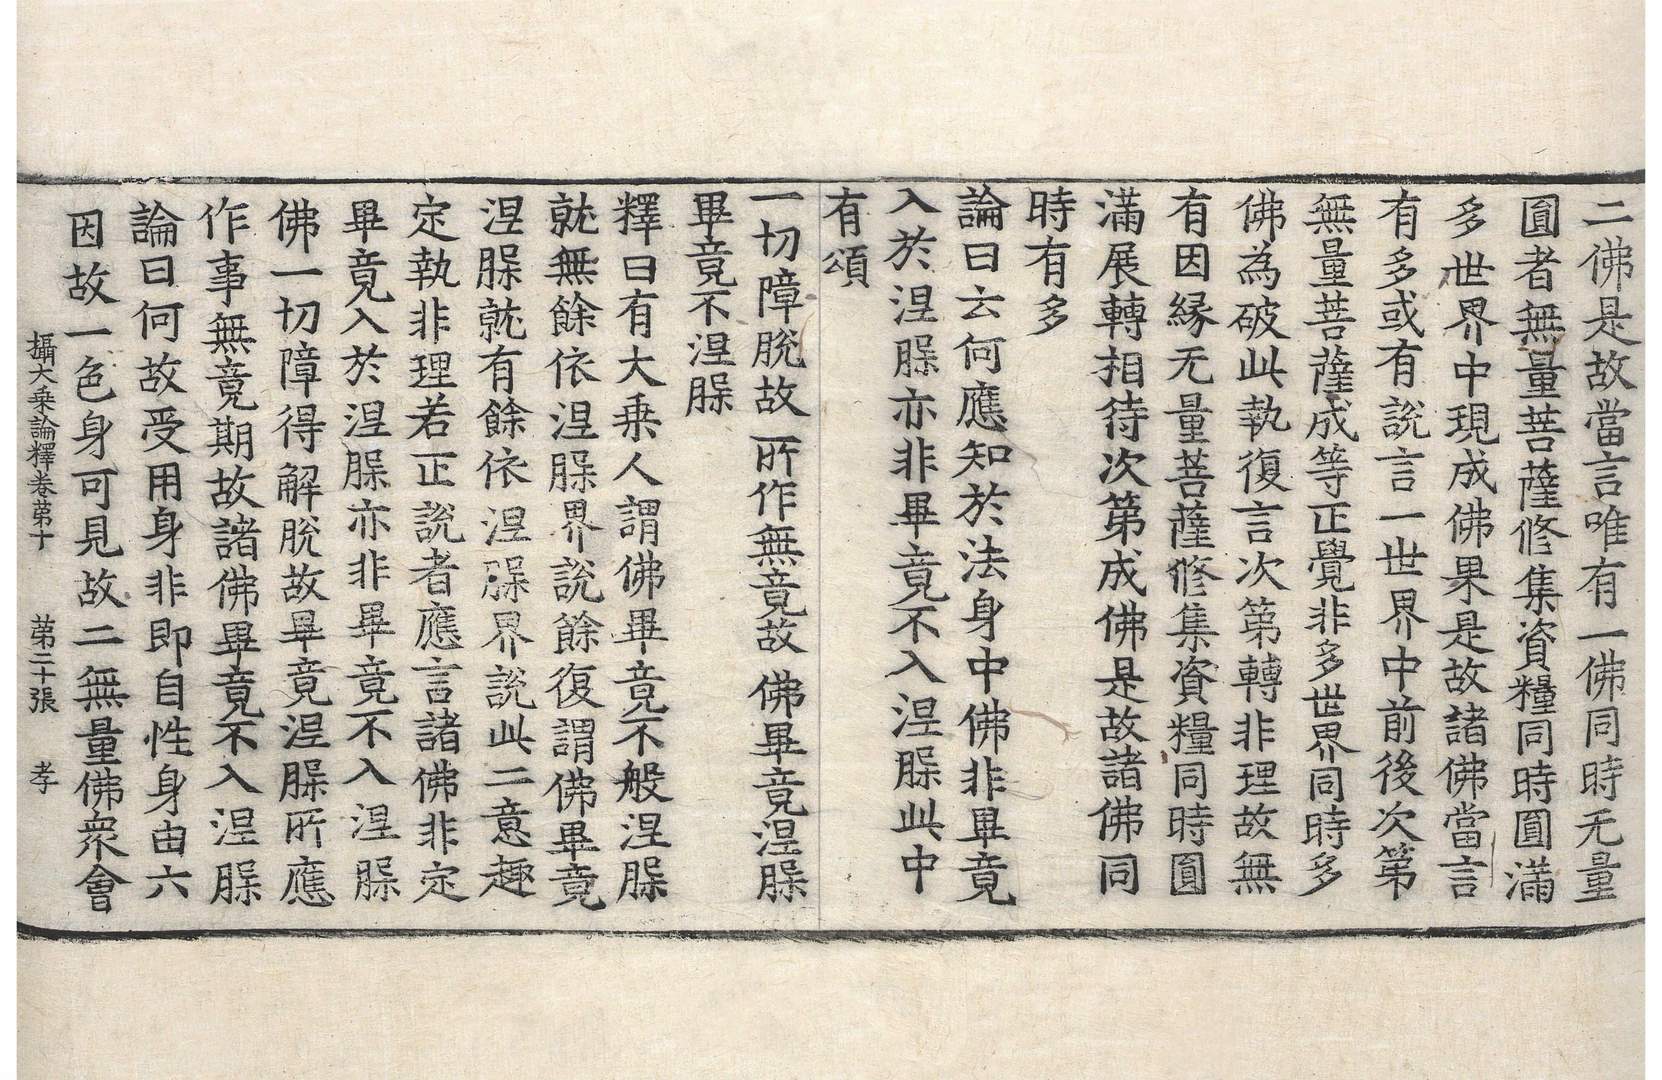 二佛是故當言唯有一佛同時无量
圓者無量菩薩修集資糧同時圓滿
多世界中現成佛果是故諸佛當言
有多或有說言一世界中前後次第
無量菩薩成等正覺非多世界同時多
佛為破此執復言次第轉非理故無
有因緣无量菩薩修集資糧同時圓
滿展轉相待次第成佛是故諸佛同
時有多
論曰云何應知於法身中佛非畢竟
入於涅槃亦非畢竟不入涅槃此中
有頌
一切障脫故 所作無竟故 佛畢竟涅槃
畢竟不涅槃
釋曰有大乗人謂佛畢竟不般涅槃
就無餘依涅槃界說餘復謂佛畢竟
涅槃就有餘依涅槃界說此二意趣
定執非理若正說者應言諸佛非定
畢竟入於涅槃亦非畢竟不入涅槃
佛一切障得解脫故畢竟涅槃所應
作事無竟期故諸佛畢竟不入涅槃
論曰何故受用身非即自性身由六
因故一色身可見故二無量佛衆會
攝大乗論釋卷第十 第二十張 孝